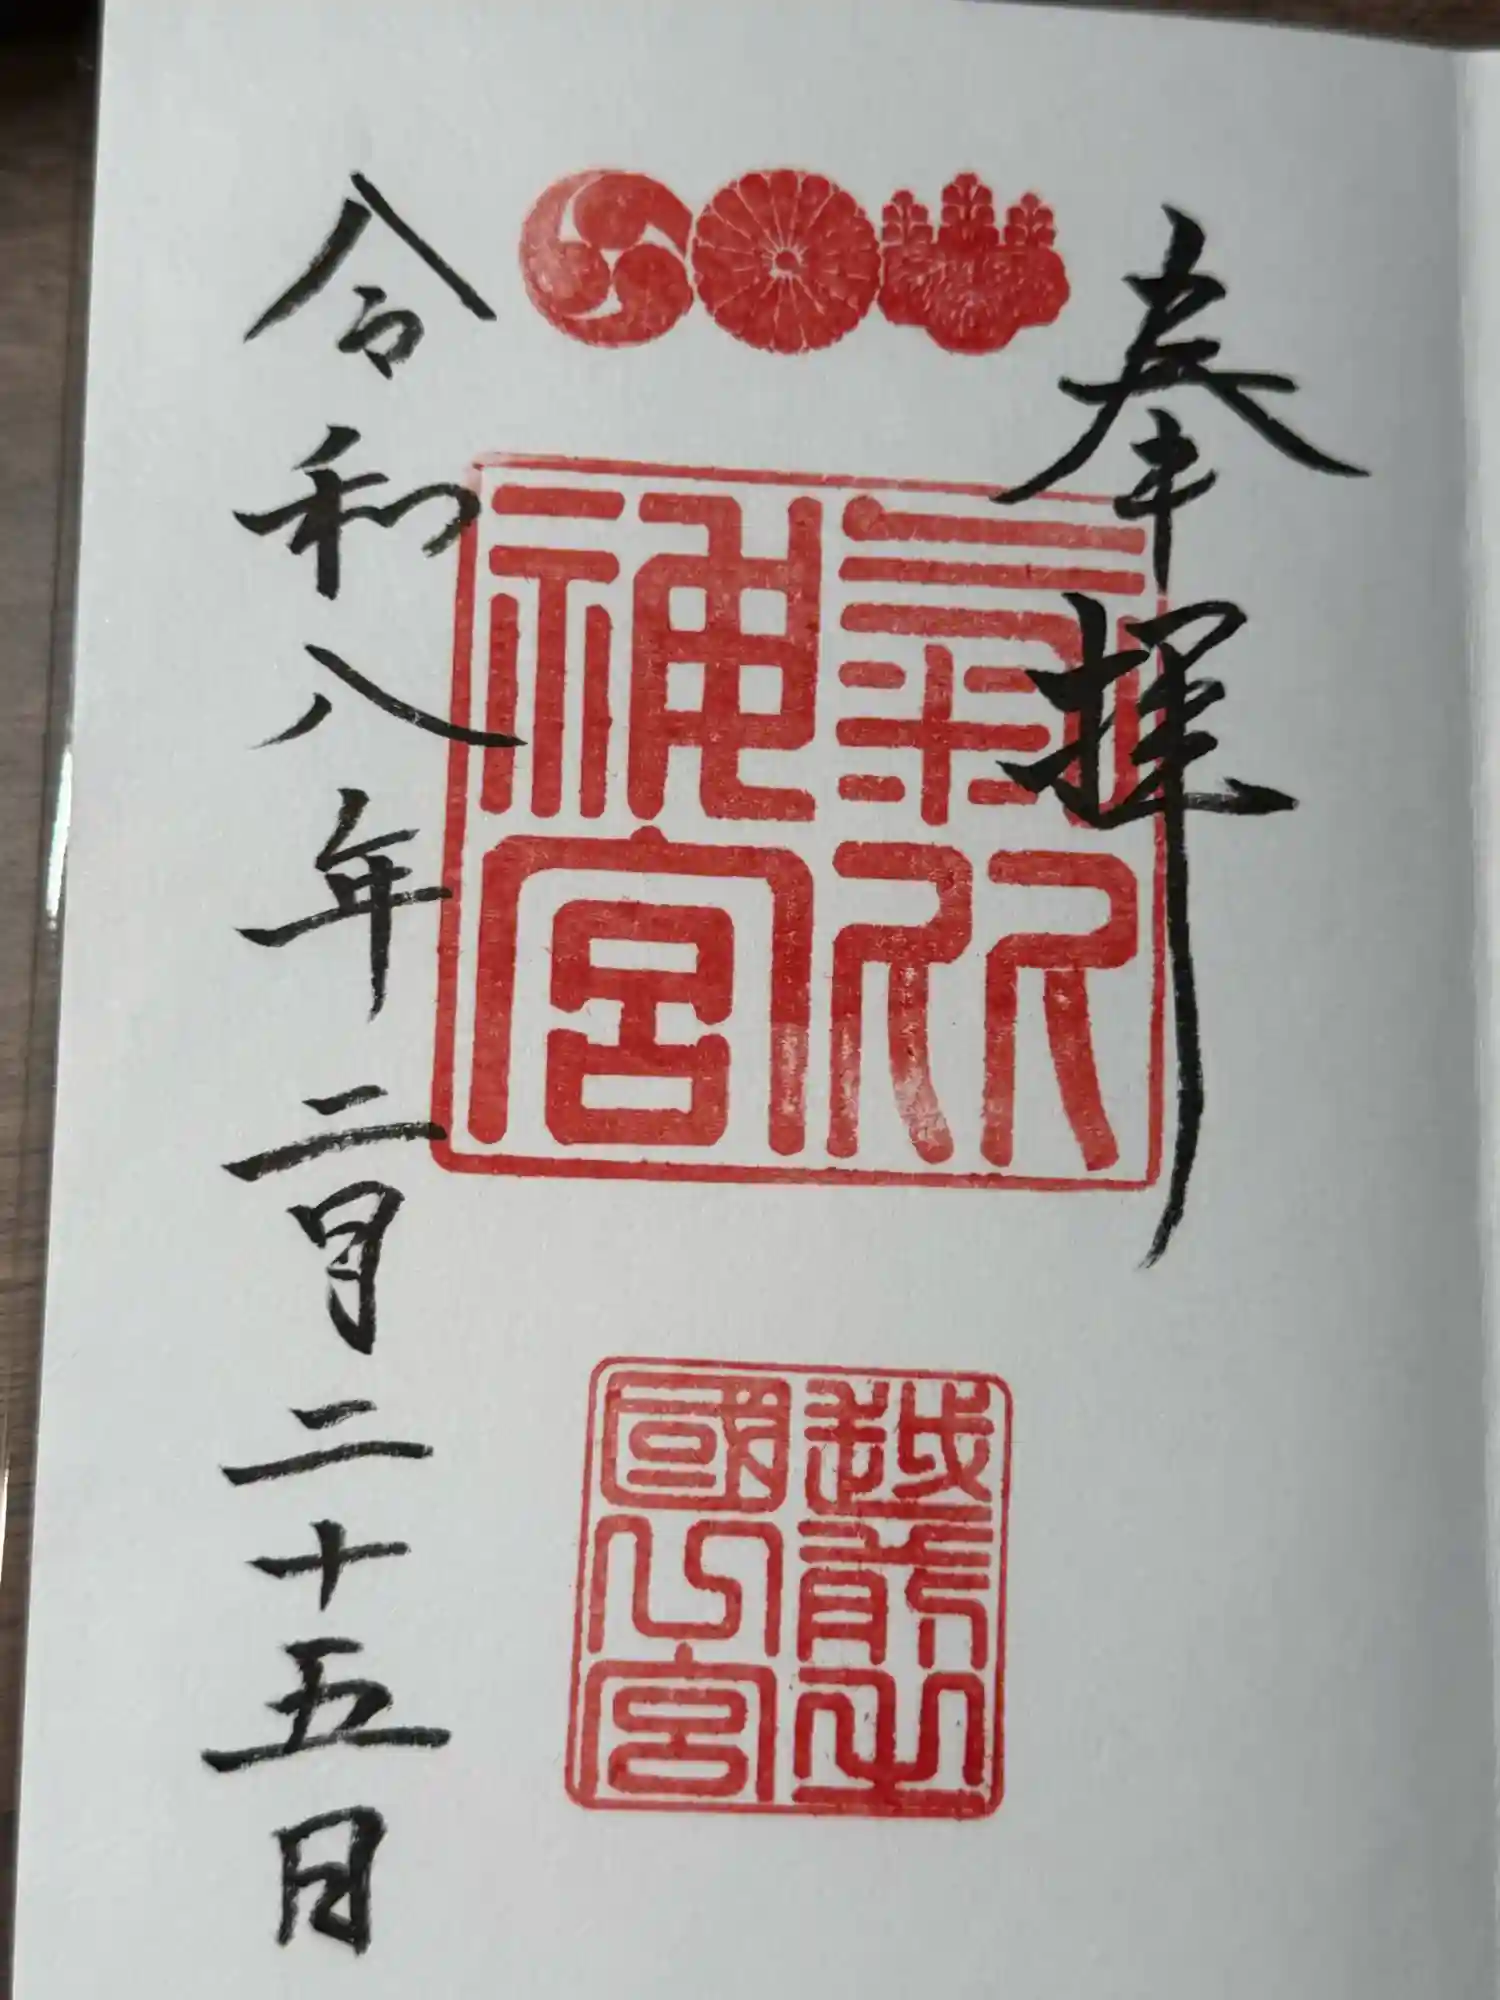 奉拝
氣比
神宮
越前之
國宮
令和八年二月二十五日